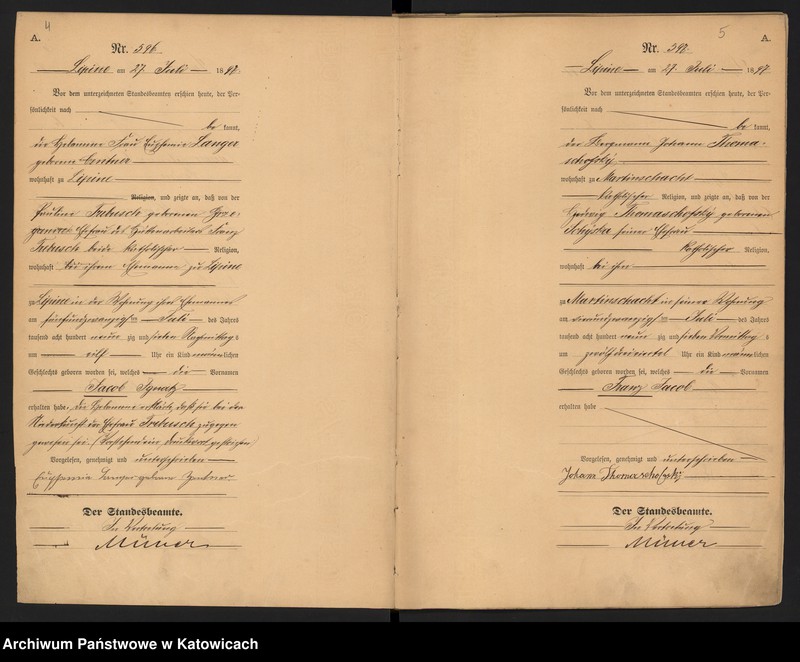 4
A.
Nr. 396.
Lipine am 27. Juli 1897.
Vor dem unterzeichneten Standesbeamten erschien heute, der Per-
sönlichkeit nach
be kannt,
die Hebamme Frau Euphemie Langer
geborene Centner
wohnhaft zu Lipine
Religion, und zeigte an, daß von der
Pauline Trebusch geborenen
Ehefrau des Hüttenarbeiters Franz
Trebusch beide katholischer Religion,
wohnhaft bei ihrem Ehemanne zu Lipine
zu Lipine in der Wohnung ihres Ehemannes
am fünfundzwanzigsten Juli des Jahres
tausend acht hundert neun zig und sieben Nachmittags
um elf Uhr ein Kind männlichen
Geschlechts geboren worden sei, welches die Vornamen
Jacob Ignatz
erhalten habe. Die Hebamme erklärte, daß sie bei der
Niederkunft der Ehefrau Trebusch zugegen
gewesen sei. (Vorstehend ein Druckwort gestrichen
Vorgelesen, genehmigt und unterschrieben
Euphemie Langer geborne Zentner
Der Standesbeamte.
In Vertretung
5
A.
Nr. 398.
Lipine am 27. Juli 1897
Vor dem unterzeichneten Standesbeamten erschien heute, der Per-
sönlichkeit nach
be kannt,
der Bergmann Johann Thoma-
schofsky,
wohnhaft zu Martinschacht
katholischer Religion, und zeigte an, daß von der
Hedwig Thomaschofsky geborenen
seiner Ehefrau
katholischer Religion,
wohnhaft bei ihm
zu Martinschacht in seiner Wohnung
am vierundzwanzigsten Juli des Jahres
tausend acht hundert neun zig und sieben Vormittags
um zwölfdreiviertel Uhr ein Kind männlichen
Geschlechts geboren worden sei, welches die Vornamen
Franz Jacob
erhalten habe
Vorgelesen, genehmigt und unterschrieben
Johann Thomaschofsky
Der Standesbeamte.
In Vertretung
Archiwum Państwowe w Katowicach